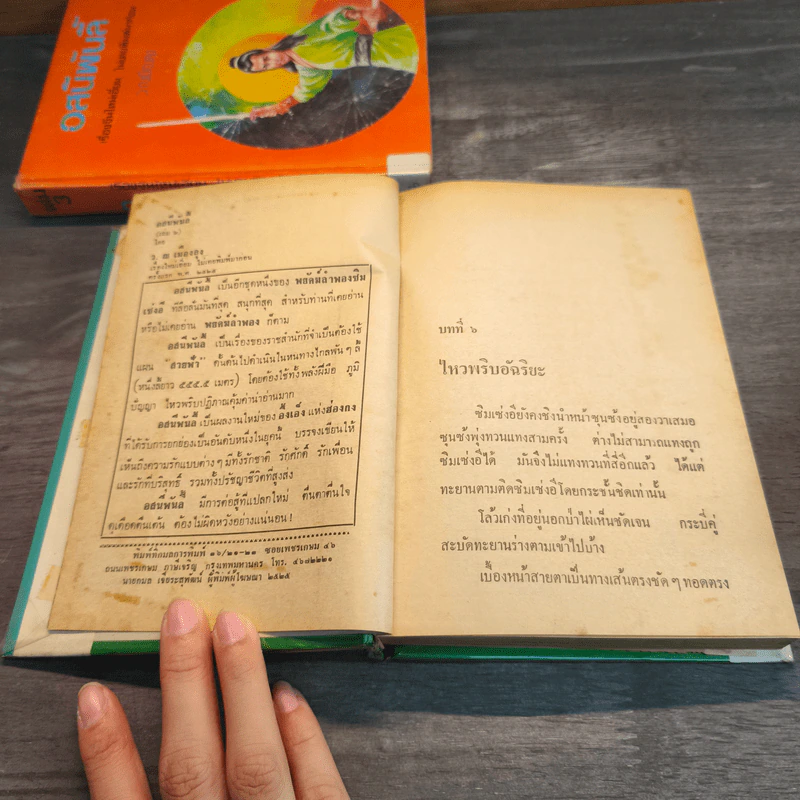 อสนีพันลี้
อสนีพันลี้
(เล่ม ๒)
โดย
ว. ณ เมืองลุง
เรื่องใหม่เอี่ยม ไม่เคยพิมพ์มาก่อน
ครั้งแรก พ.ศ. ๒๕๒๕
อสนีพันลี้ เป็นอีกชุดหนึ่งของ พยัคฆ์ลำพองซิม
เซ่งอี ที่ลือลั่นมันที่สุด สนุกที่สุด สำหรับท่านที่เคยอ่าน
หรือไม่เคยอ่าน พยัคฆ์ลำพอง ก็ตาม
อสนีพันลี้ เป็นเรื่องของราชสำนักที่จำเป็นต้องใช้
แผน "สายฟ้า" ดั้นด้นไปดำเนินในหนทางไกลพัน ๆ ลี้
(หนึ่งลี้ยาว ๕๕๕.๕ เมตร) โดยต้องใช้ทั้งพลังฝีมือ ภูมิ
ปัญญา ไหวพริบปฏิภาณคุ้มค่าน่าอ่านมาก
อสนีพันลี้ เป็นผลงานใหม่ของ อ้อเอ็ง แห่งฮ่องกง
ที่ได้รับการยกย่องเป็นอันดับหนึ่งในยุคนี้ บรรจงเขียนให้
เห็นถึงความรักแบบต่าง ๆ มีทั้งรักชาติ รักศักดิ์ รักเพื่อน
และรักที่บริสุทธิ์ รวมทั้งปรัชญาชีวิตที่สูงส่ง
อสนีพันลี้ มีการต่อสู้ที่แปลกใหม่ ตื่นตาตื่นใจ
ดุเดือดตื่นเต้น ต้องไม่ผิดหวังอย่างแน่นอน!
พิมพ์ที่กมลการพิมพ์ ๑๖/๒๑-๒๓ ซอยเพชรเกษม ๔๖
ถนนเพชรเกษม ภาษีเจริญ กรุงเทพมหานคร โทร. ๔๖๗๒๒๒๑
นายกมล เจียระสุพัฒน์ ผู้พิมพ์ผู้โฆษณา ๒๕๒๕
บทที่ ๖
ไหวพริบอัจฉริยะ
ซิมเซ่งอียังคงชิงนำหน้าซุนซังอยู่สองวาเสมอ
ซุนซังพุ่งทวนแทงสามครั้ง ต่างไม่สามารถแทงถูก
ซิมเซ่งอีได้ มันจึงไม่แทงทวนที่สี่อีกแล้ว ได้แต่
ทะยานตามติดซิมเซ่งอีโดยกระชั้นชิดเท่านั้น
โล้วเก่งที่อยู่นอกป่าไผ่เห็นชัดเจน กระบี่คู่
สะบัดทะยานร่างตามเข้าไปบ้าง
เบื้องหน้าสายตาเป็นทางเส้นตรงชัด ๆ ทอดตรง